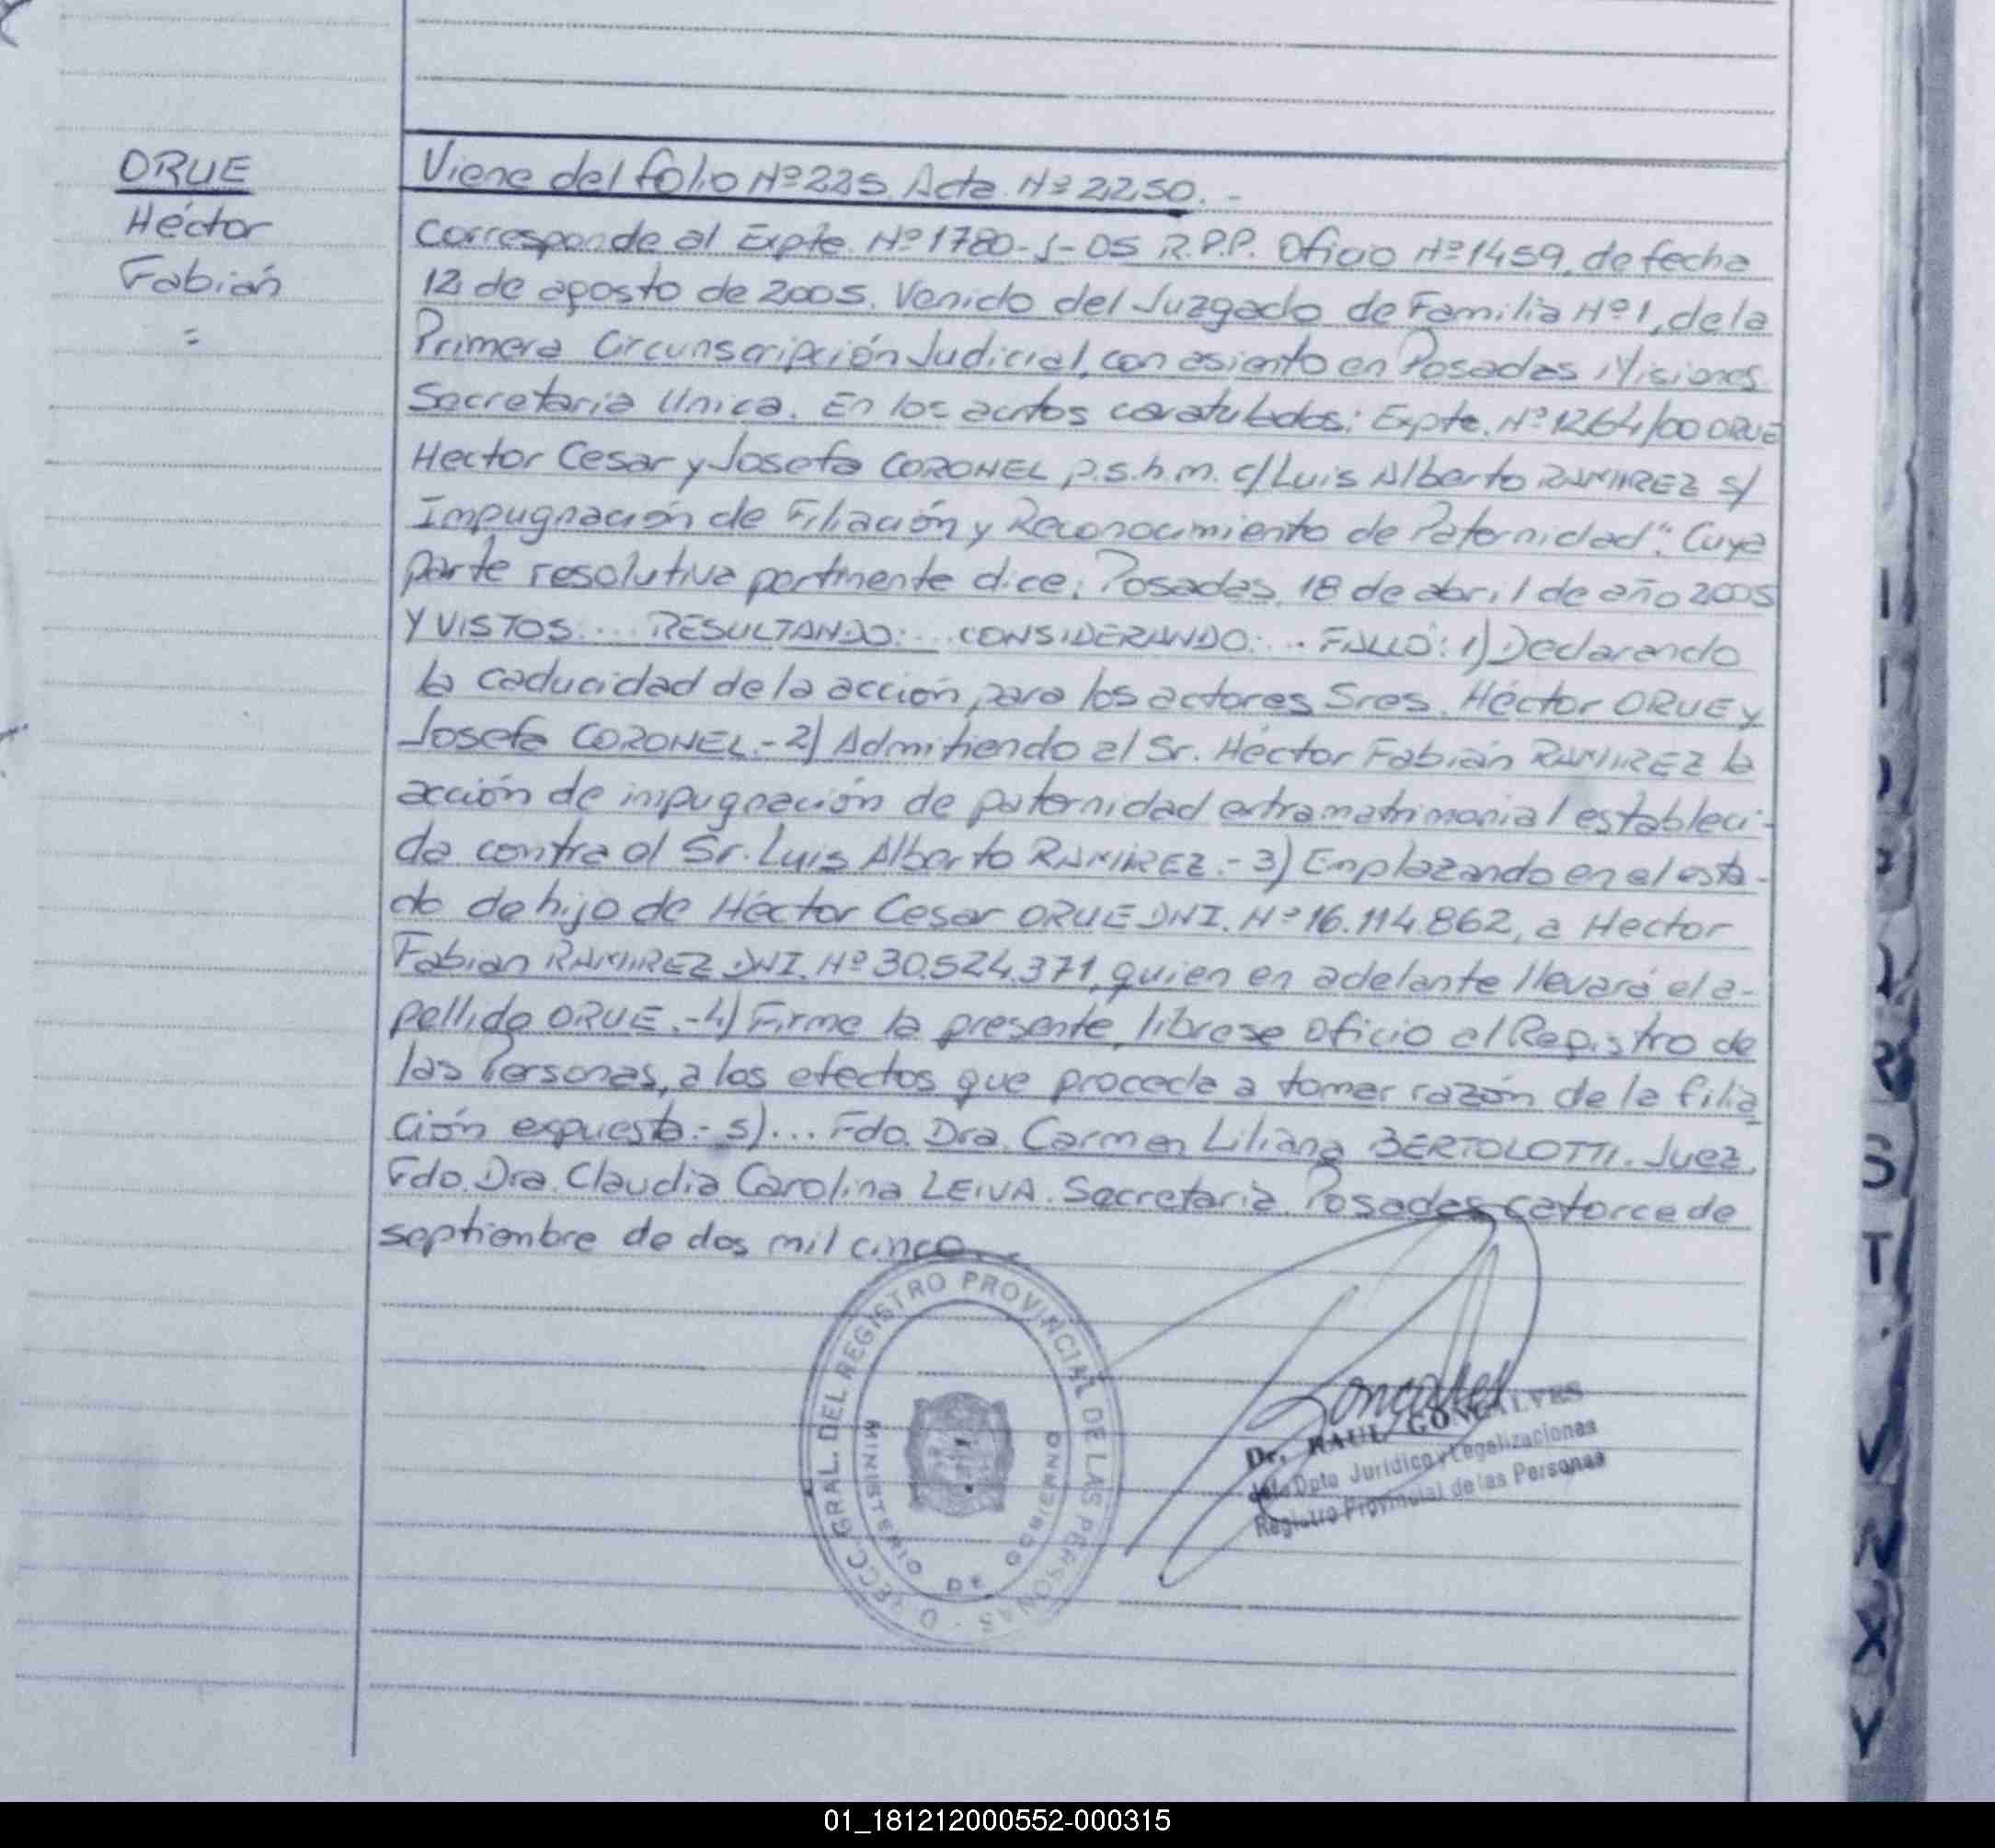 ORUE
Héctor
Fabián
=
Viene del folio Nº 225. Acta Nº 2250.-
Corresponde al Expte. Nº 1780-J-05 R.P.P. Oficio Nº 1459, de fecha
12 de agosto de 2005. Venido del Juzgado de Familia Nº 1, de la
Primera Circunscripción Judicial, con asiento en Posadas Misiones
Secretaria Unica. En los autos caratulados: Expte. Nº 1264/00 ORUE
Hector Cesar y Josefa CORONEL p.s.h.m. c/ Luis Alberto RAMIREZ s/
Impugnación de Filiación y Reconocimiento de Paternidad". Cuya
parte resolutiva pertinente dice: Posadas, 18 de abril de año 2005
Y VISTOS:... RESULTANDO:... CONSIDERANDO:... FALLO: 1) Declarando
la caducidad de la acción para los actores Sres. Héctor ORUE y
Josefa CORONEL.- 2) Admitiendo al Sr. Héctor Fabián RAMIREZ la
acción de impugnación de paternidad extramatrimonial estableci-
da contra el Sr. Luis Alberto RAMIREZ.- 3) Emplazando en el esta-
do de hijo de Héctor Cesar ORUE DNI. Nº 16.114.862, a Hector
Fabian RAMIREZ DNI. Nº 30.524.371, quien en adelante llevará el a-
pellido ORUE.- 4) Firme la presente, librese oficio al Registro de
las Personas, a los efectos que proceda a tomar razón de la filia
ción expuesta.- 5)... Fdo. Dra. Carmen Liliana BERTOLOTTI. Juez.
Fdo. Dra. Claudia Carolina LEIVA. Secretaria. Posadas catorce de
septiembre de dos mil cinco.-
DIRECC. GRAL. DEL REGISTRO PROVINCIAL DE LAS PERSONAS
MINISTERIO DE GOBIERNO
Dr. RAUL GONCALVES
Jefe Dpto Jurídico y Legalizaciones
Registro Provincial de las Personas
R
S
T
V
W
X
Y
01_181212000552-000315